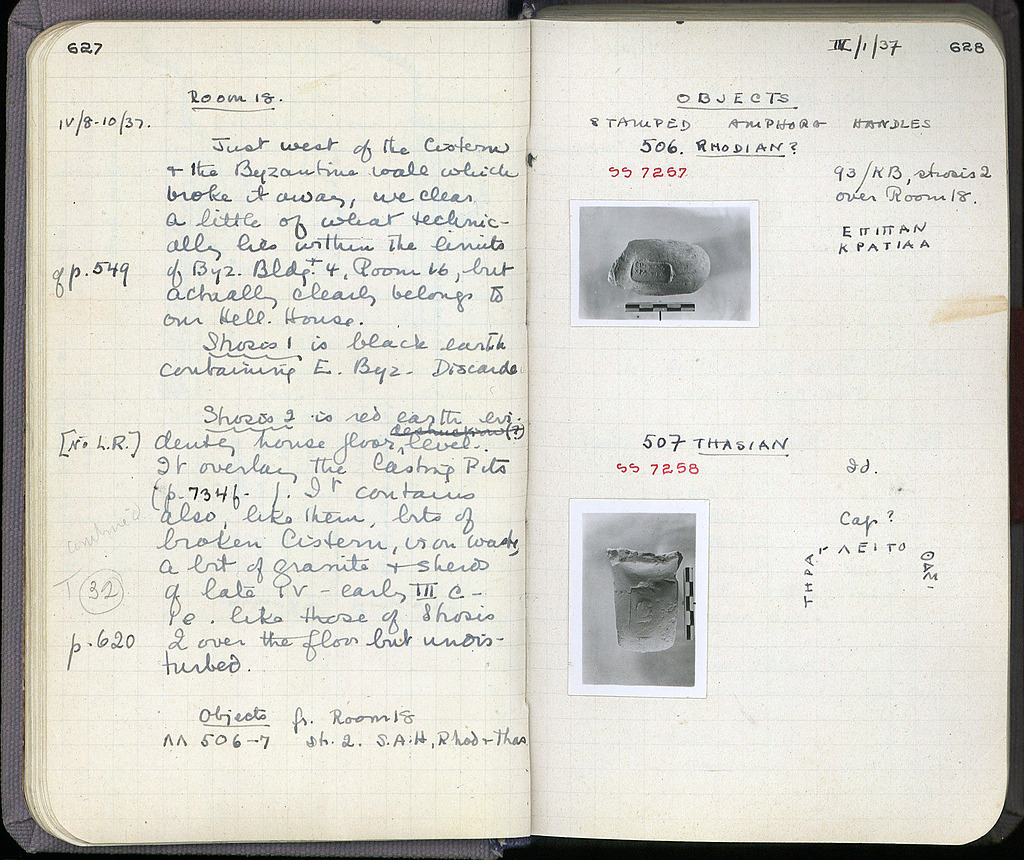 627
Room 18.
IV/8-10/37.
Just west of the Cistern
& the Byzantine wall which
broke it away, we clear
a little of what technic-
ally lies within the limits
cf p. 549
of Byz. Bldg. 4, Room 16, but
actually clearly belongs to
our Hell. House.
Strosis 1 is black earth
containing E. Byz. Discarded
Strosis 2 is red earth evi-
destruction (?)
[No L.R.]
dently house floor level.
It overlay the Casting Pits
(p. 734f- ). It contains
also, like them, bits of
combined
broken Cistern, iron waste,
a bit of granite & sherds
T 32
of late IV - early III c -
i.e. like those of Strosis
p. 620
2 over the floor but undis-
turbed.
Objects fr. Room 18
ΛΛ 506-7 Str. 2. S.A.H, Rhod + Thas
IV/1/37
628
OBJECTS
STAMPED AMPHORA HANDLES
506. RHODIAN?
SS 7257
93/KB, strosis 2
over Room 18.
ΕΠΙΠΑΝ
ΚΡΑΤΙΔΑ
507 THASIAN
SS 7258
Id.
Cap?
ΛΕΙΤΟ
ΤΗΡΑ
ΘΑΣΙ